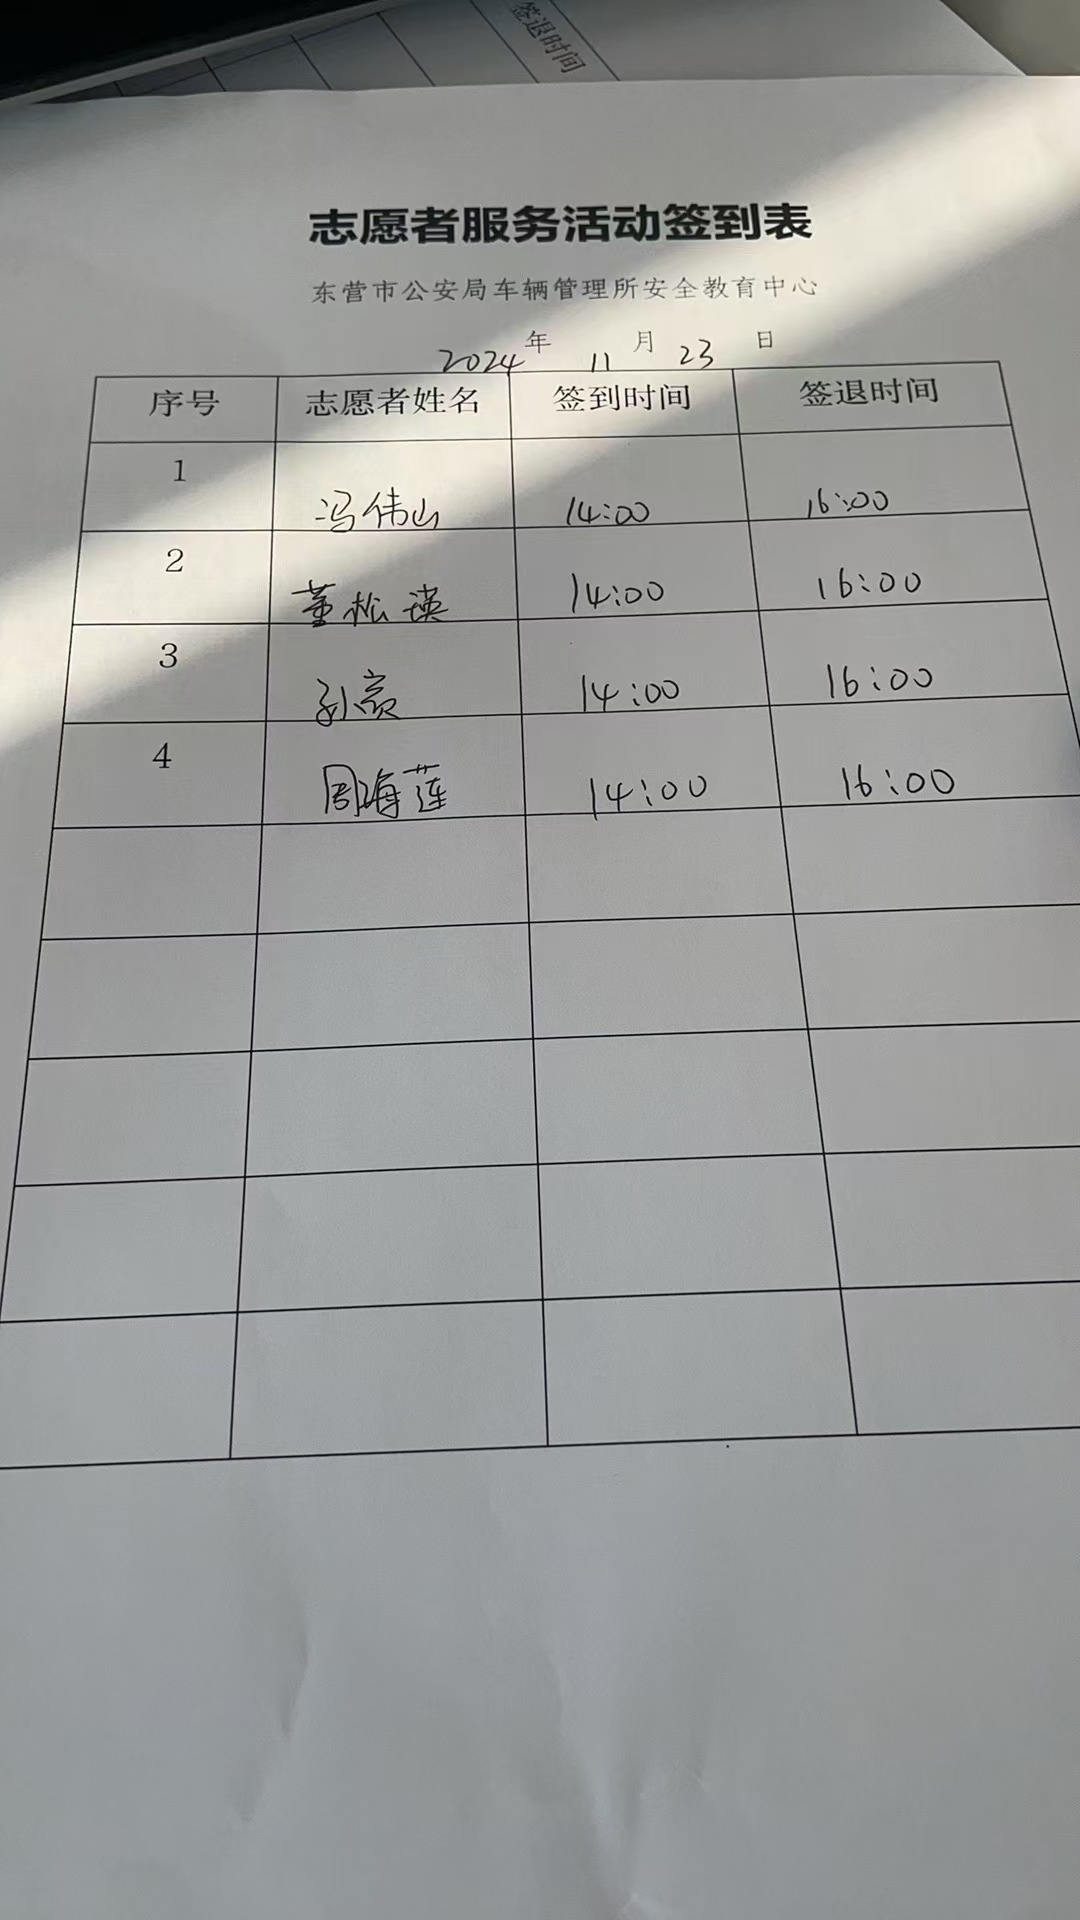 签退时间
志愿者服务活动签到表
东营市公安局车辆管理所安全教育中心
2024年 11月 23日
序号 志愿者姓名 签到时间 签退时间
1 冯伟山 14:00 16:00
2 董松瑛 14:00 16:00
3 孙 14:00 16:00
4 周海莲 14:00 16:00